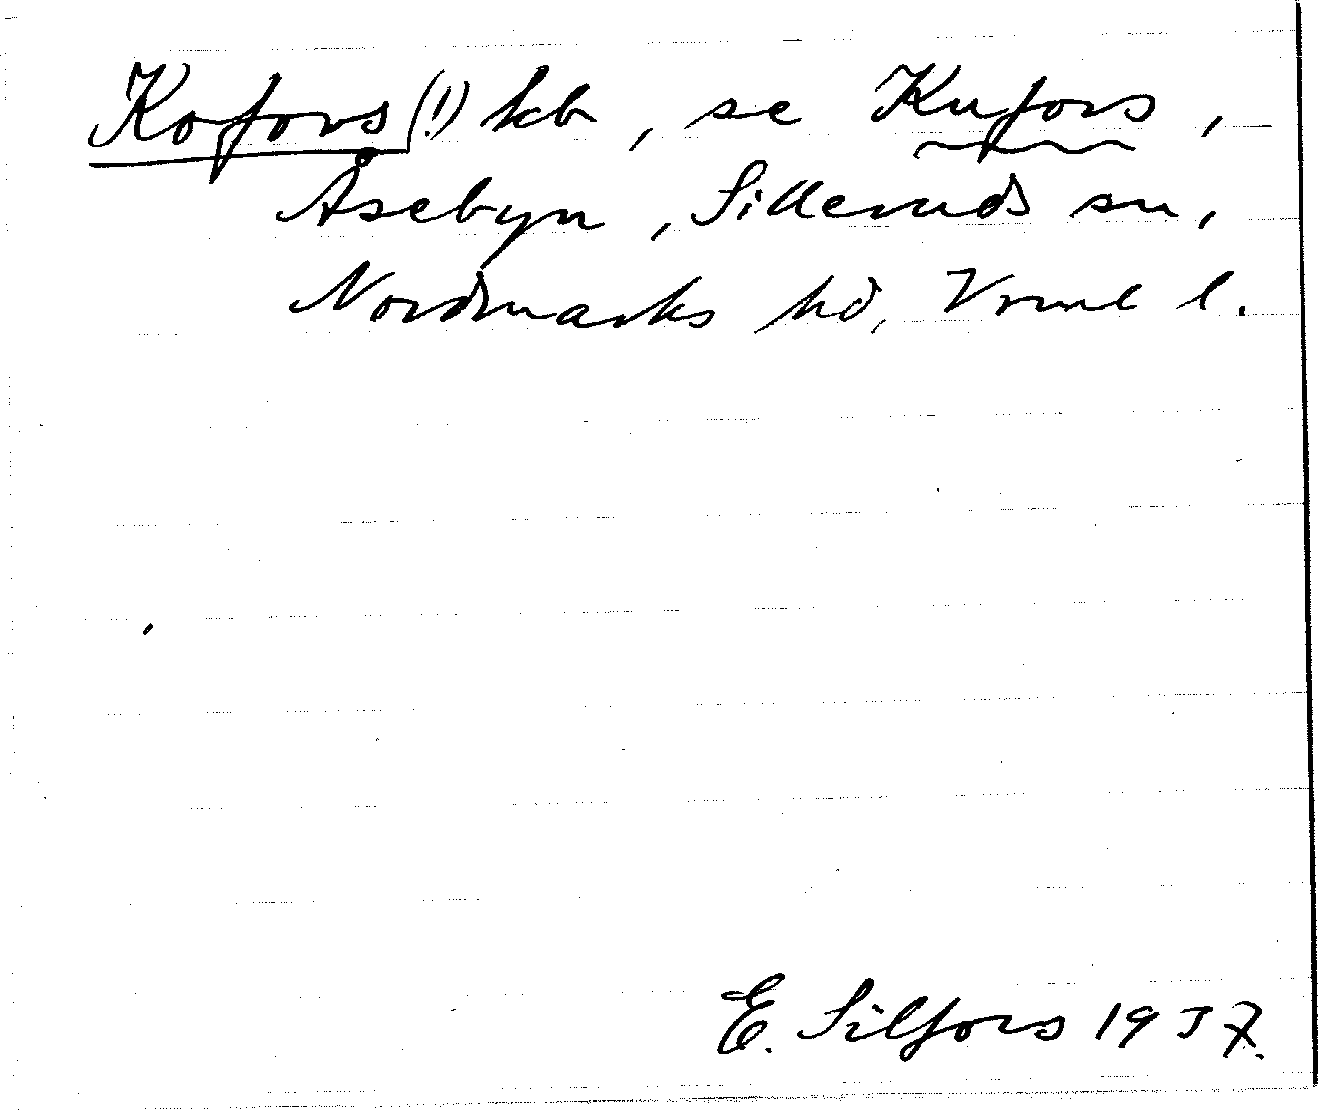 Kofors (!) kb, se Kufors,
Åsebyn, Silleruds sn,
Nordmarks hd, Vrml l.
E. Silfors 1937.